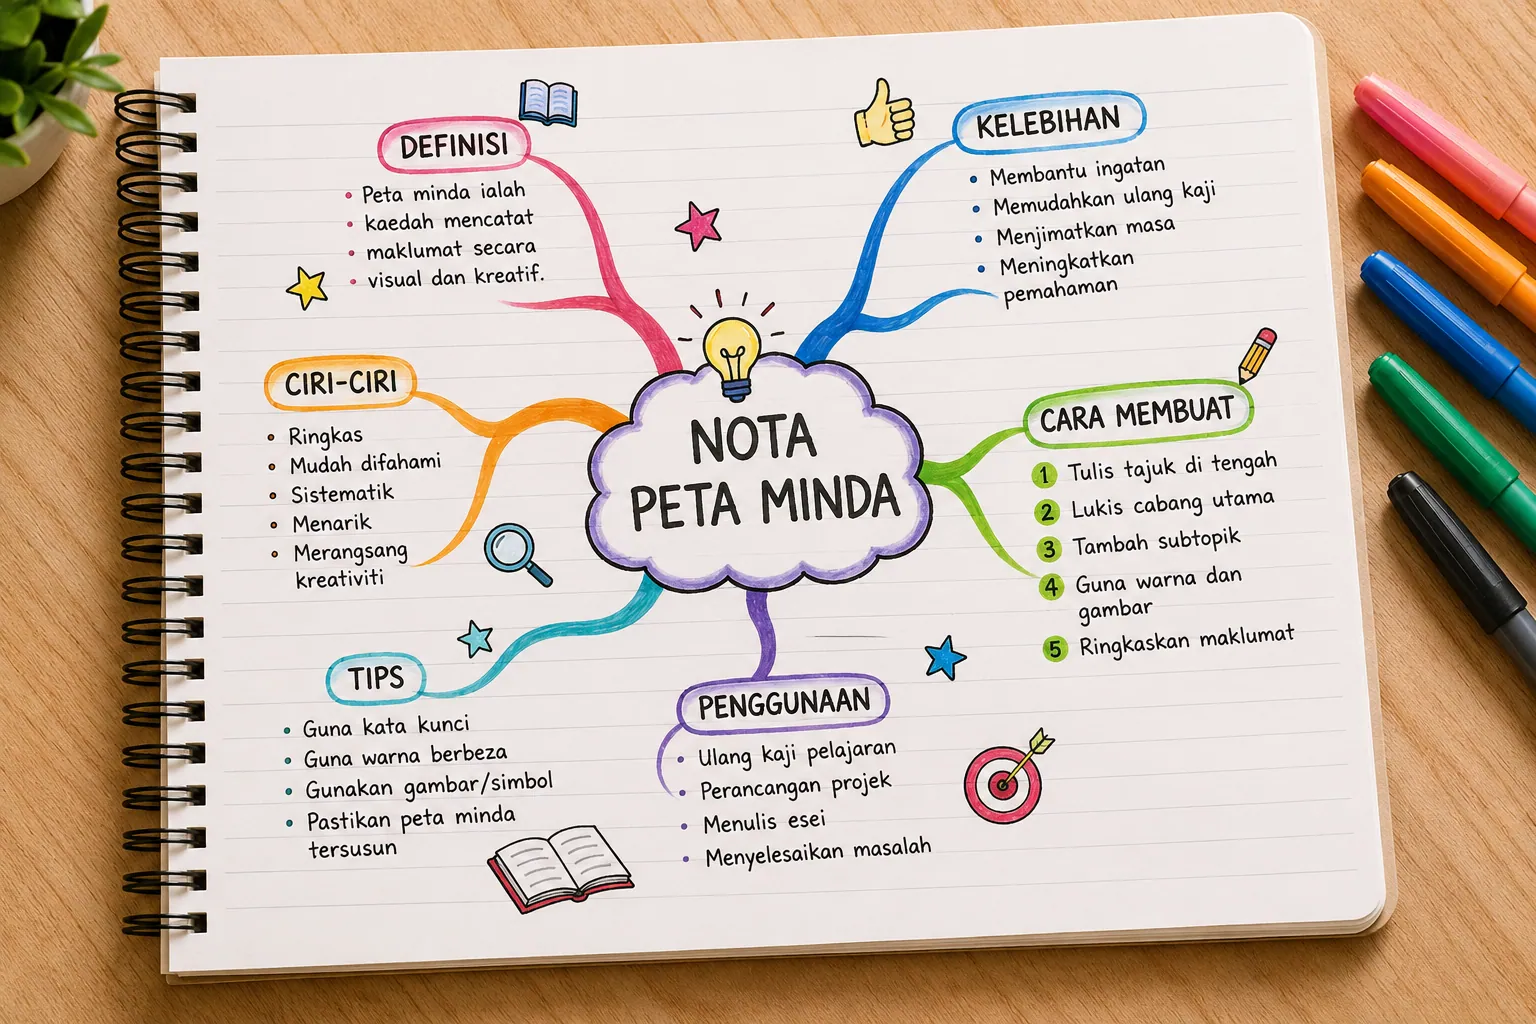 NOTA
PETA MINDA
DEFINISI
• Peta minda ialah
• kaedah mencatat
• maklumat secara
• visual dan kreatif.
KELEBIHAN
• Membantu ingatan
• Memudahkan ulang kaji
• Menjimatkan masa
• Meningkatkan
pemahaman
CIRI-CIRI
• Ringkas
• Mudah difahami
• Sistematik
• Menarik
• Merangsang
kreativiti
CARA MEMBUAT
1 Tulis tajuk di tengah
2 Lukis cabang utama
3 Tambah subtopik
4 Guna warna dan
gambar
5 Ringkaskan maklumat
TIPS
• Guna kata kunci
• Guna warna berbeza
• Gunakan gambar/simbol
• Pastikan peta minda
tersusun
PENGGUNAAN
• Ulang kaji pelajaran
• Perancangan projek
• Menulis esei
• Menyelesaikan masalah